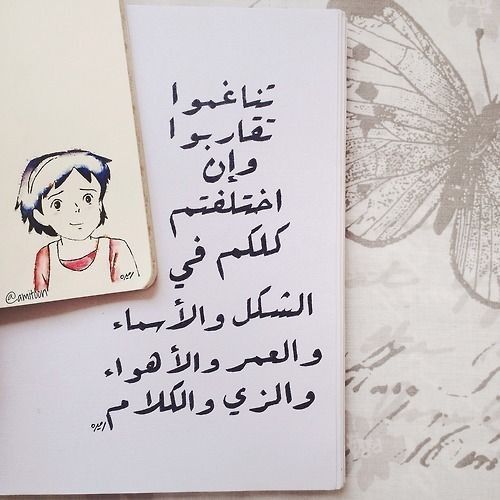 تناغموا
تقاربوا
وإن
اختلفتم
كلكم في
الشكل والأسماء
والعمر والأهواء
والزي والكلام
@amitoun